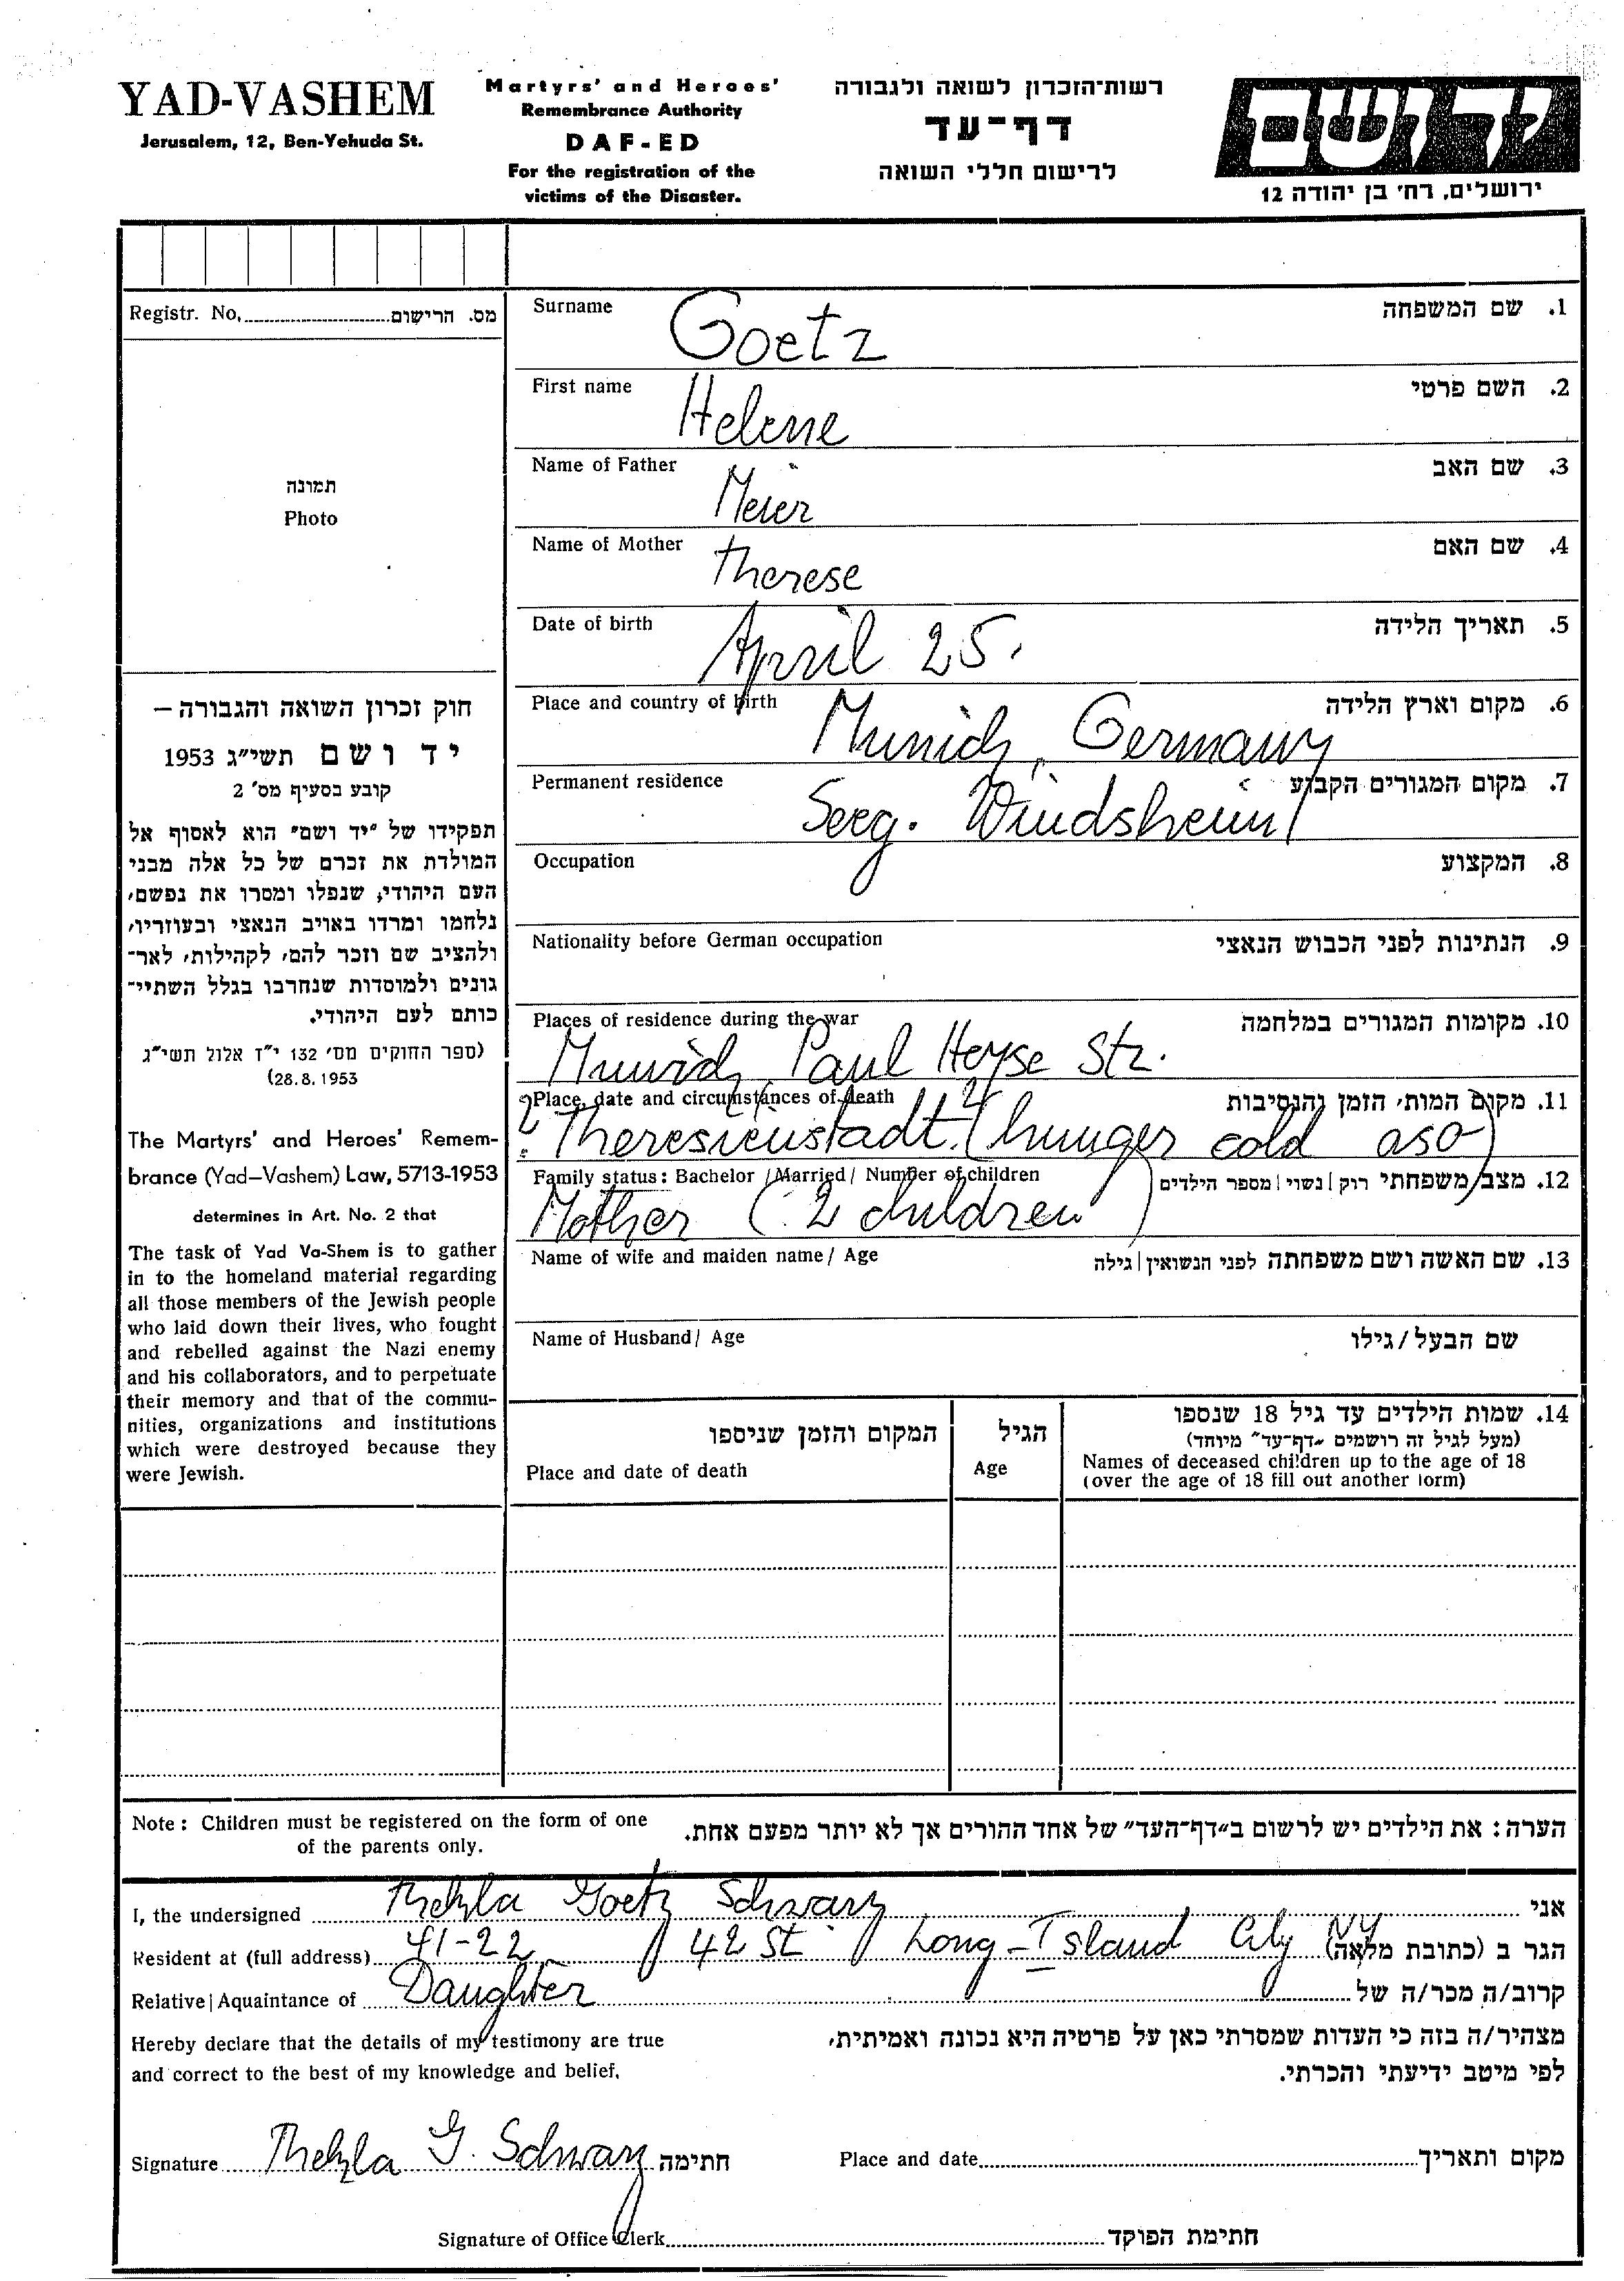 YAD-VASHEM
Jerusalem, 12, Ben-Yehuda St.
Martyrs' and Heroes'
Remembrance Authority
DAF-ED
For the registration of the
victims of the Disaster.
רשות־הזכרון לשואה ולגבורה
דף־עד
לרישום חללי השואה
יד ושם
ירושלים, רח' בן יהודה 12
Registr. No. מס. הרישום
תמונה
Photo
חוק זכרון השואה והגבורה –
יד ושם תשי״ג 1953
קובע בסעיף מס' 2
תפקידו של ״יד ושם״ הוא לאסוף אל
המולדת את זכרם של כל אלה מבני
העם היהודי, שנפלו ומסרו את נפשם,
נלחמו ומרדו באויב הנאצי ובעוזריו,
ולהציב שם וזכר להם, לקהילות, לאר־
גונים ולמוסדות שנחרבו בגלל השתיי־
כותם לעם היהודי.
(ספר החוקים מס' 132 י״ז אלול תשי״ג
28.8.1953)
The Martyrs' and Heroes' Remem-
brance (Yad-Vashem) Law, 5713-1953
determines in Art. No. 2 that
The task of Yad Va-Shem is to gather
in to the homeland material regarding
all those members of the Jewish people
who laid down their lives, who fought
and rebelled against the Nazi enemy
and his collaborators, and to perpetuate
their memory and that of the commu-
nities, organizations and institutions
which were destroyed because they
were Jewish.
Surname Goetz 1. שם המשפחה
First name Helene 2. השם פרטי
Name of Father Meier 3. שם האב
Name of Mother Therese 4. שם האם
Date of birth April 25. 5. תאריך הלידה
Place and country of birth Munich, Germany 6. מקום וארץ הלידה
Permanent residence Seeg. Windsheim 7. מקום המגורים הקבוע
Occupation 8. המקצוע
Nationality before German occupation 9. הנתינות לפני הכבוש הנאצי
Places of residence during the war 10. מקומות המגורים במלחמה
Munich, Paul Heyse Str.
Place, date and circumstances of death 11. מקום המות, הזמן והנסיבות
? Theresienstadt. (hunger cold aso)
Family status: Bachelor / Married / Number of children 12. מצב משפחתי רוק | נשוי | מספר הילדים
Mother (2 children)
Name of wife and maiden name / Age 13. שם האשה ושם משפחתה לפני הנשואין | גילה
Name of Husband / Age שם הבעל / גילו
המקום והזמן שניספו
Place and date of death
הגיל
Age
14. שמות הילדים עד גיל 18 שנספו
(מעל לגיל זה רושמים ״דף־עד״ מיוחד)
Names of deceased children up to the age of 18
(over the age of 18 fill out another form)
Note: Children must be registered on the form of one
of the parents only.
הערה: את הילדים יש לרשום ב״דף־העד״ של אחד ההורים אך לא יותר מפעם אחת.
I, the undersigned Thekla Goetz Schwarz אני
Resident at (full address) 41-22 / 42 St / Long-Island City NY הגר ב (כתובת מלאה)
Relative | Aquaintance of Daughter קרוב/ה מכר/ה של
Hereby declare that the details of my testimony are true
and correct to the best of my knowledge and belief.
מצהיר/ה בזה כי העדות שמסרתי כאן על פרטיה היא נכונה ואמיתית,
לפי מיטב ידיעתי והכרתי.
Signature Thekla G. Schwarz חתימה
Place and date מקום ותאריך
Signature of Office Clerk חתימת הפוקד